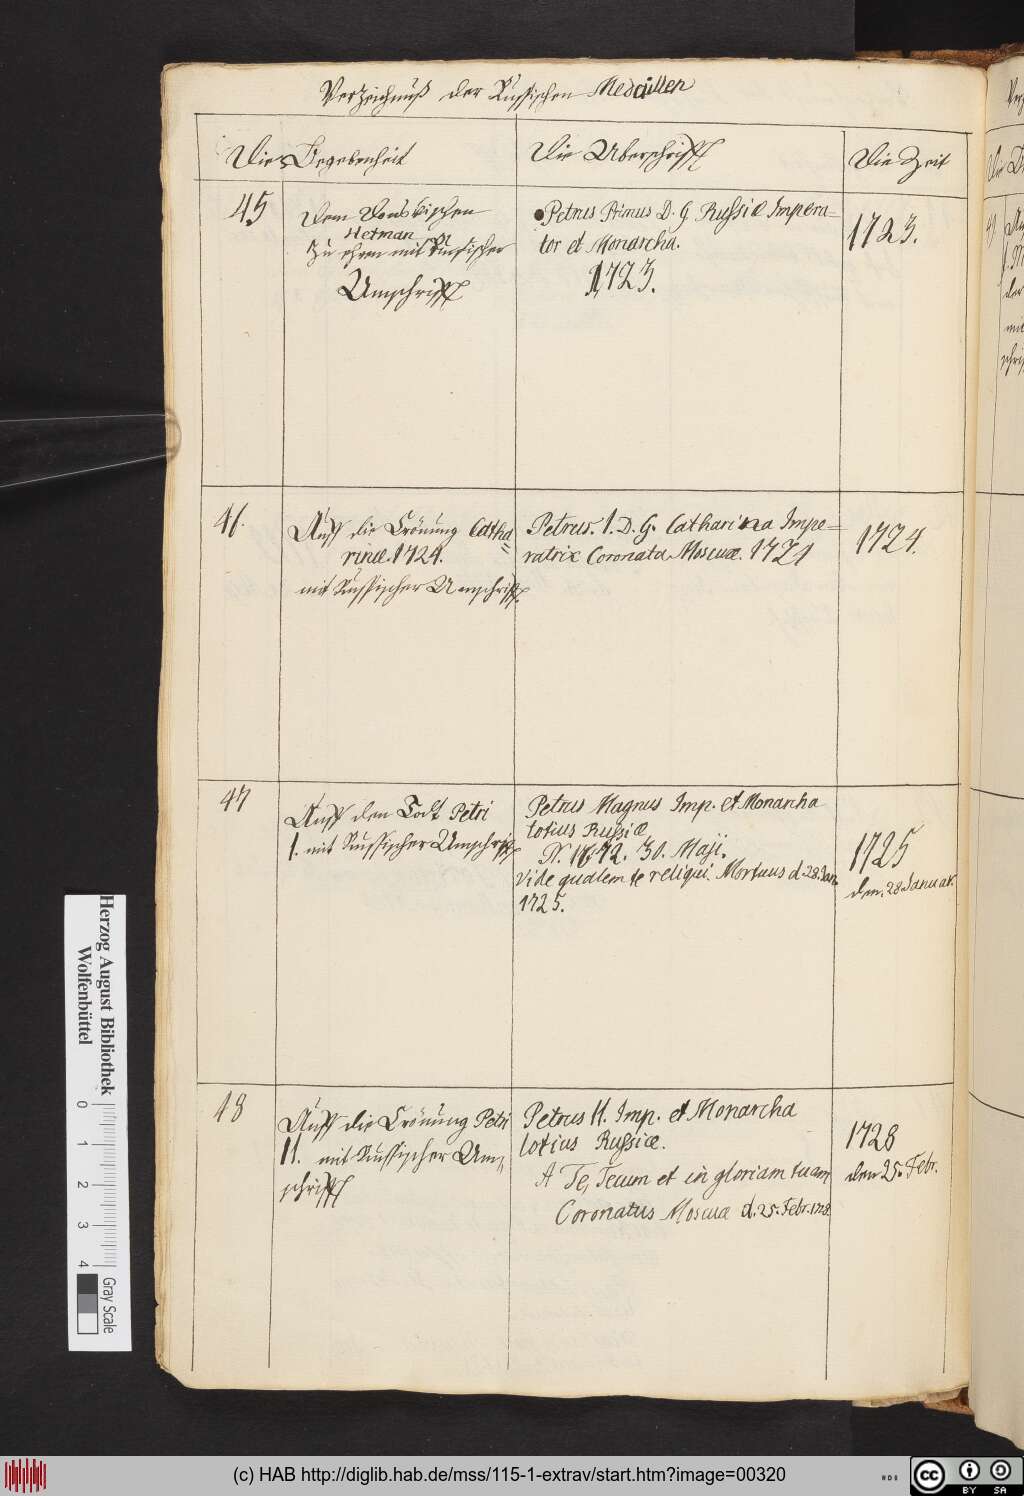 Verzeichnuß der Russischen Medaillen
Die Begebenheit
Die Uberschrifft
Die Zeit
45
Dem Donskischen
Hetman
Zu ehren mit Russischer
Umschrifft
Petrus Primus D. G. Russiæ Impera=
tor et Monarcha.
1723.
1723.
46.
Auff die Crönung Catha=
rinæ. 1724.
mit Russischer Umschrifft.
Petrus. I. D. G. Catharina Impe=
ratrix Coronata Moscuæ. 1724
1724.
47
Auff den Todt Petri
I. mit Russischer Umschrifft
Petrus Magnus Imp. et Monarcha
totius Russiæ
N. 1672. 30. Maji.
Vide qualem te reliqui. Mortuus d. 28. Jan.
1725.
1725
den. 28. Januar.
48
Auff die Crönung Petri
II. mit Russischer Um=
schrifft
Petrus II. Imp. et Monarcha
totius Russiæ.
A Te, Tecum et in gloriam tuam
Coronatus Moscuæ d. 25. Febr. 1728.
1728
den 25. Febr.
Herzog August Bibliothek
Wolfenbüttel
0 1 2 3 4
Gray Scale
(c) HAB http://diglib.hab.de/mss/115-1-extrav/start.htm?image=00320
cc BY SA